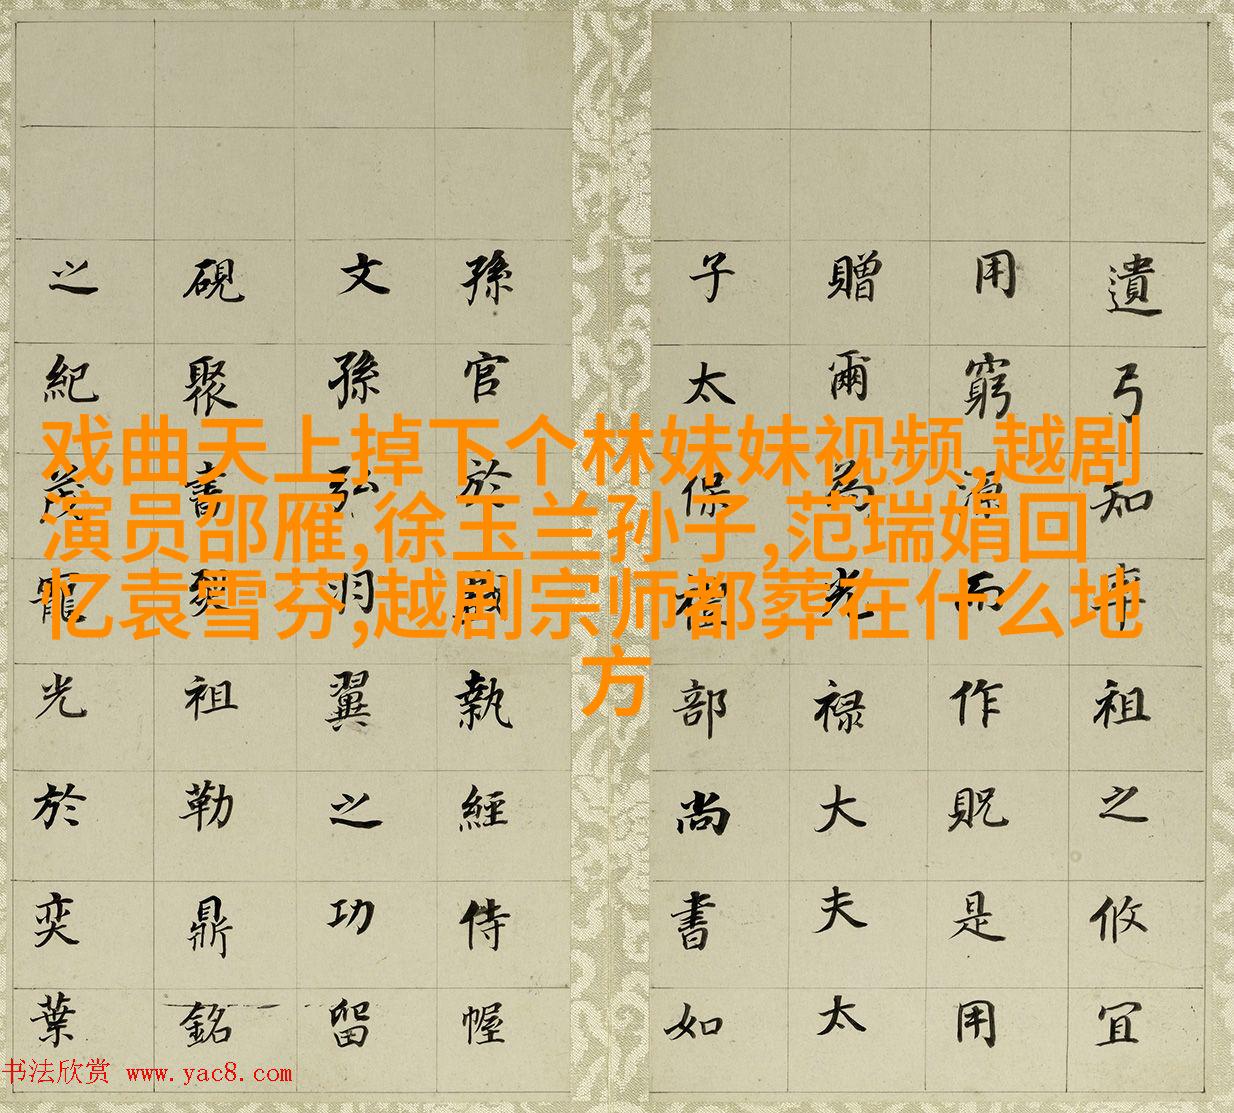 戏曲天上掉下个林妹妹视频,越剧
演员邵雁,徐玉兰孙子,范瑞娟回
忆袁雪芬,越剧宗师都葬在什么地
方
遺弓知祖之攸宜
用窮源而作貺是用
贈爾為光禄大夫太
子太保禮部尚書如
孫官於執經侍幄
文孫弘羽翼之功留
硯聚書祖勒鼎銘
之紀茂寵光於奕葉
书法欣赏 www.yac8.com